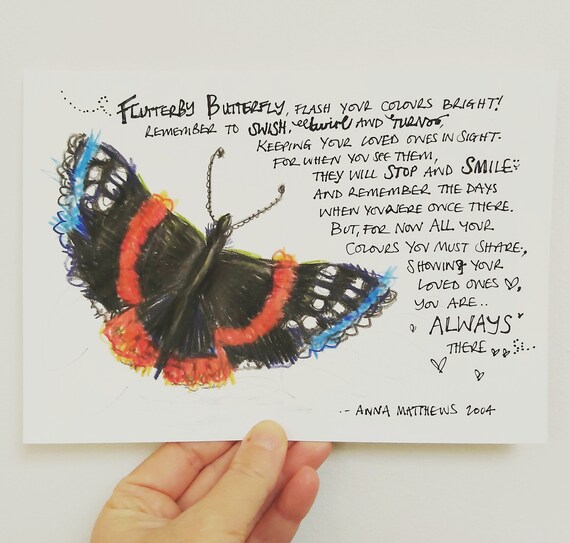 FLUTTERBY BUTTERFLY, FLASH YOUR COLOURS BRIGHT!
REMEMBER TO SWISH, twirl AND TURN,
KEEPING YOUR LOVED ONES IN SIGHT.
FOR WHEN YOU SEE THEM,
THEY WILL STOP AND SMILE
AND REMEMBER THE DAYS
WHEN YOU WERE ONCE THERE.
BUT, FOR NOW ALL YOUR
COLOURS YOU MUST SHARE,
SHOWING YOUR
LOVED ONES ♡,
YOU ARE..
ALWAYS
THERE
- ANNA MATTHEWS 2004